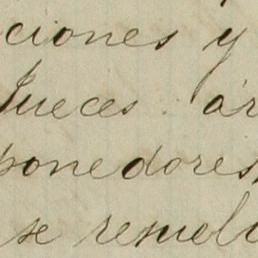 ciones y
Jueces ár
ponedores,
se resuelv